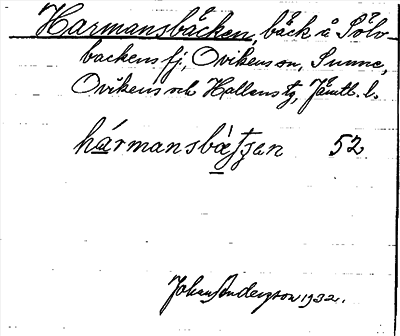 Harmansbäcken, bäck å Sölv-
backens fj, Ovikens sn, Sunne,
Ovikens och Hallens tg, Jämtl. l.
hármansbæ̀tʃan 52
Johan Anderzon 1932.